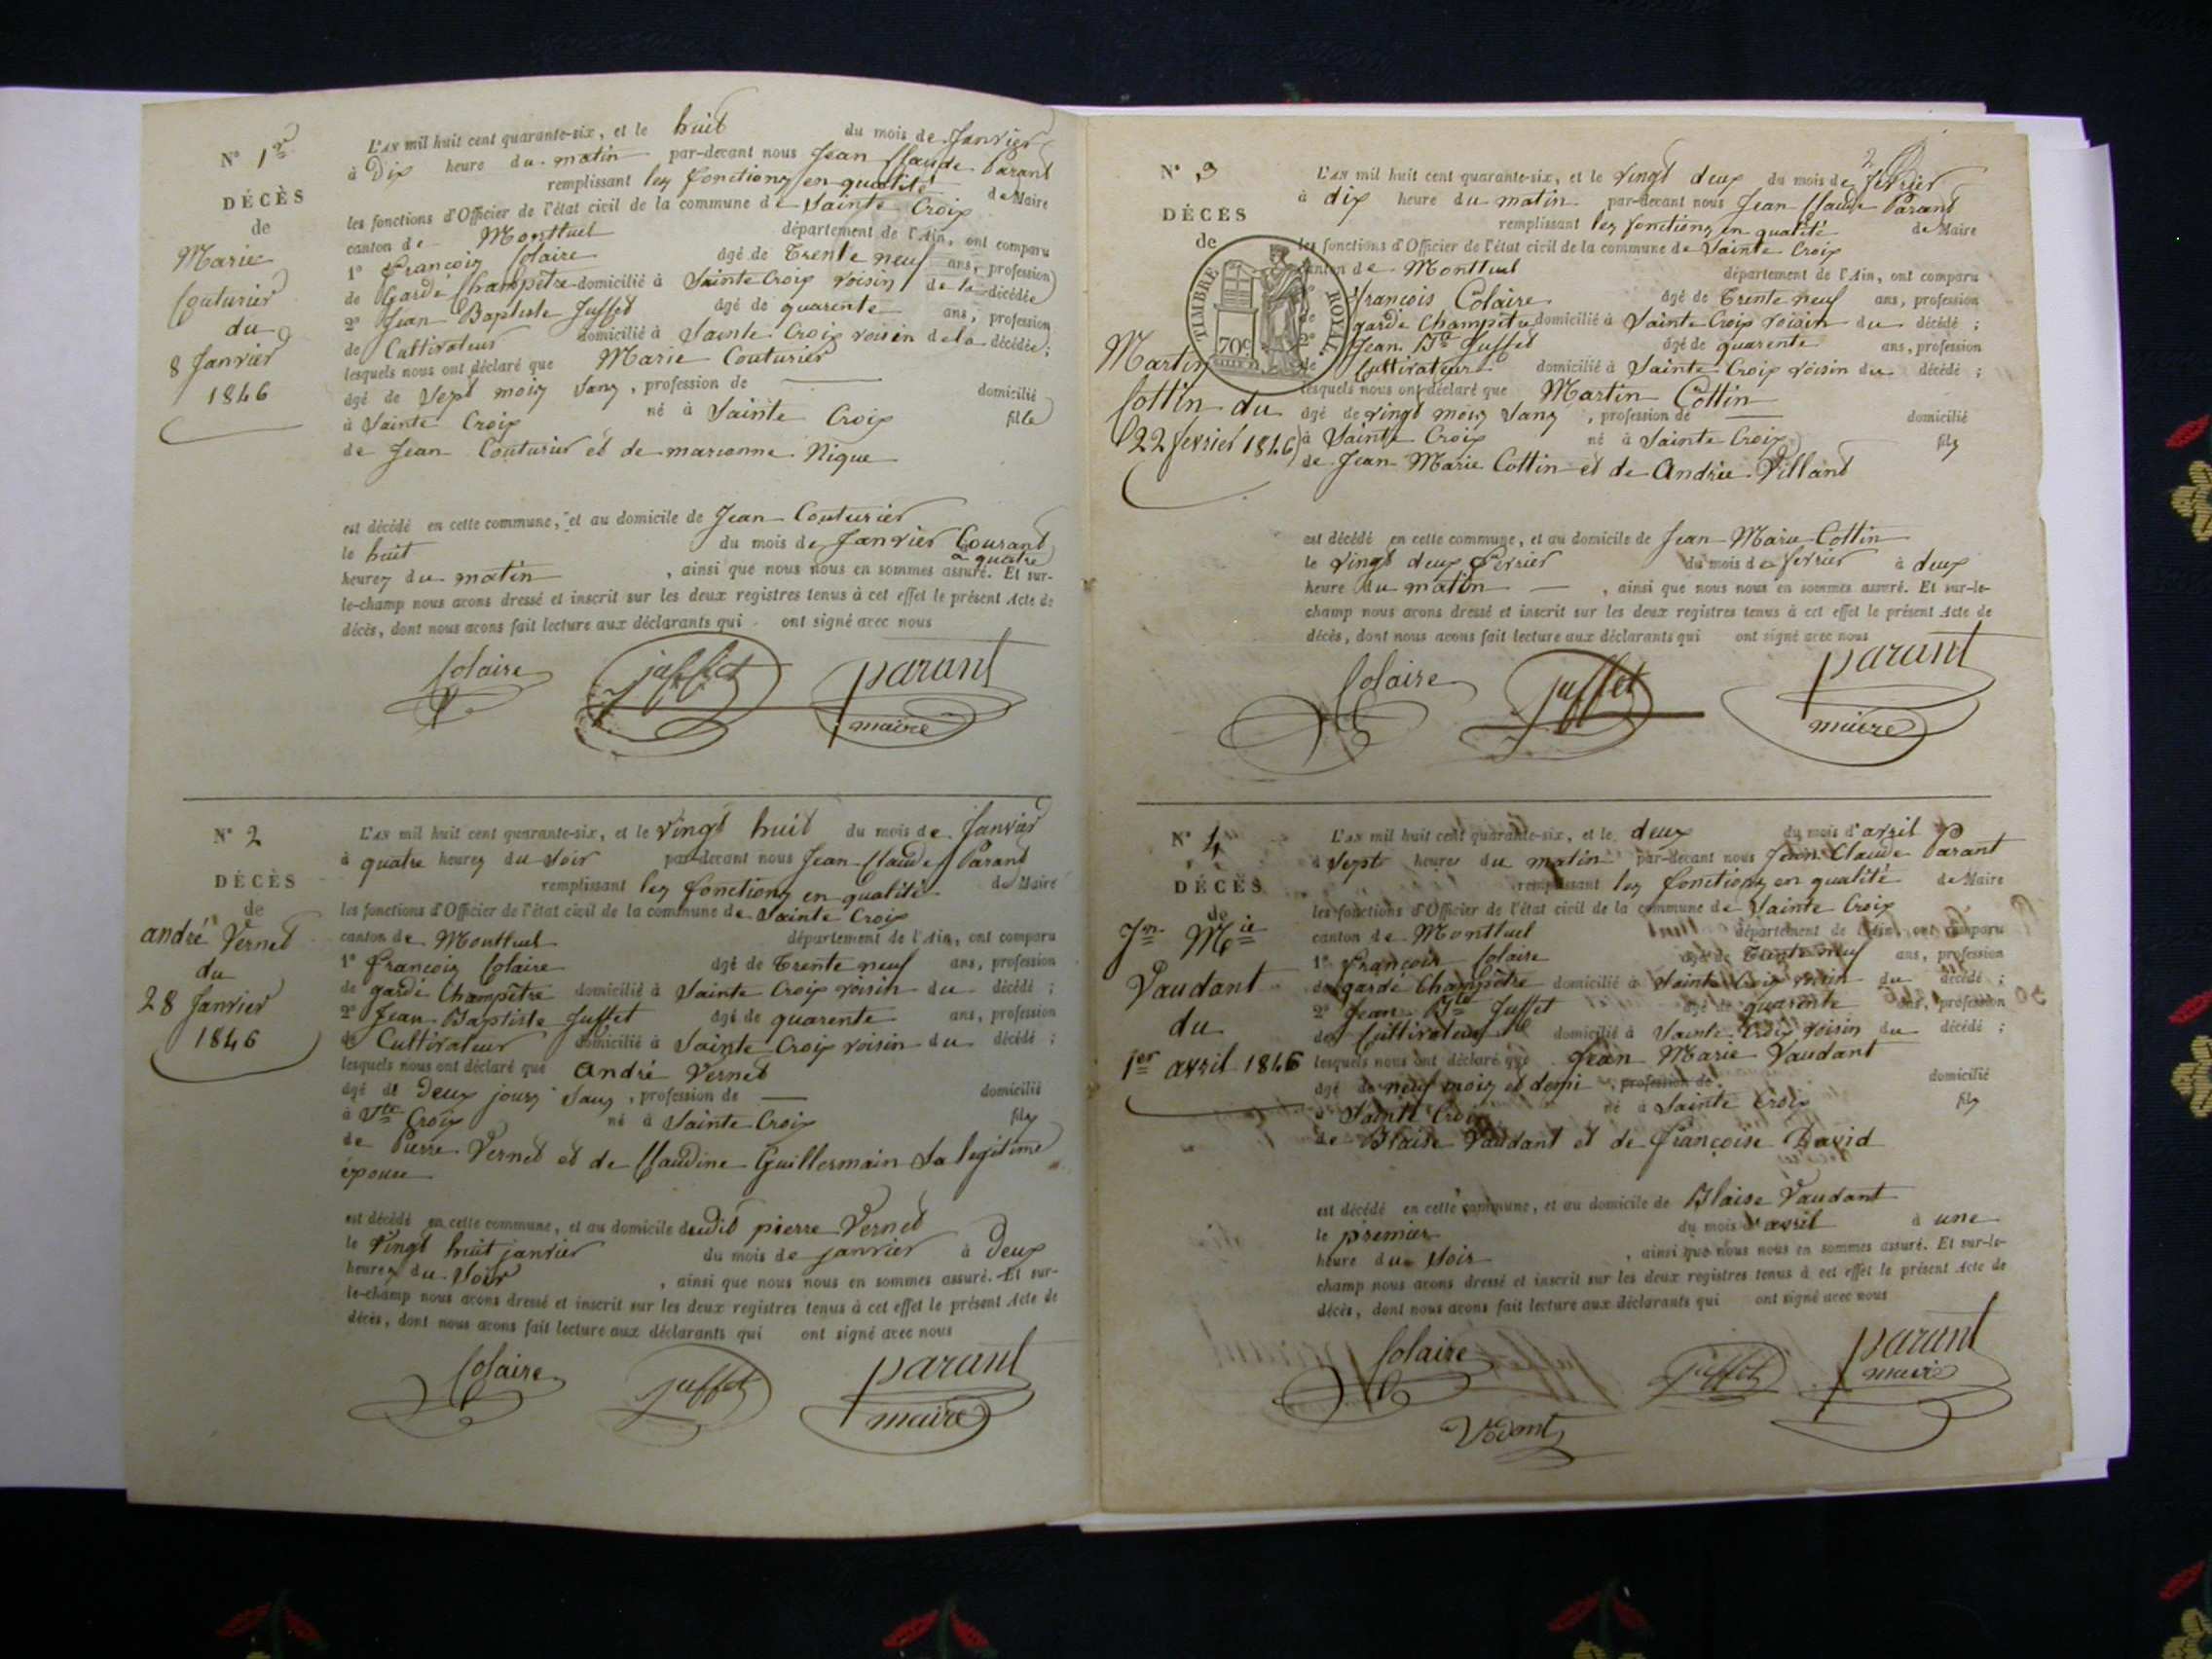 N° 1er
DÉCÈS
de
Marie
Couturier
du
8 Janvier
1846
L'AN mil huit cent quarante-six, et le huit du mois de Janvier
à Dix heure du matin par-devant nous Jean Claude Parant
remplissant les fonctions en qualité de Maire
les fonctions d'Officier de l'état civil de la commune de Sainte Croix
canton de Montluel département de l'Ain, ont comparu
1° François Colaire âgé de Trente neuf ans, profession
de Garde Champêtre domicilié à Sainte Croix voisin de la décédée
2° Jean Baptiste Juffet âgé de quarente ans, profession
de Cultivateur domicilié à Sainte Croix voisin de la décédée ;
lesquels nous ont déclaré que Marie Couturier
âgé de Sept mois Sans, profession de — domicilié
à Sainte Croix né à Sainte Croix fille
de Jean Couturier et de marianne Nique
est décédé en cette commune, et au domicile de Jean Couturier
le huit du mois de Janvier Courant
à quatre
heures du matin, ainsi que nous nous en sommes assuré. Et sur-
le-champ nous avons dressé et inscrit sur les deux registres tenus à cet effet le présent Acte de
décès, dont nous avons fait lecture aux déclarants qui ont signé avec nous
Colaire juffet parant
maire
N° 2
DÉCÈS
de
andré Vernet
du
28 Janvier
1846
L'AN mil huit cent quarante-six, et le vingt huit du mois de Janvier
à quatre heures du Soir par-devant nous Jean Claude Parant
remplissant les fonctions en qualité de Maire
les fonctions d'Officier de l'état civil de la commune de Sainte Croix
canton de Montluel département de l'Ain, ont comparu
1° François Colaire âgé de Trente neuf ans, profession
de garde Champêtre domicilié à Sainte Croix voisin du décédé ;
2° Jean Baptiste Juffet âgé de quarente ans, profession
de Cultivateur domicilié à Sainte Croix voisin du décédé ;
lesquels nous ont déclaré que André Vernet
âgé de Deux jours Sans, profession de — domicilié
à Ste Croix né à Sainte Croix fils
de Pierre Vernet et de Claudine Guillermain Sa legitime
épouse
est décédé en cette commune, et au domicile dudit pierre Vernet
le vingt huit janvier du mois de janvier à Deux
heures du Soir, ainsi que nous nous en sommes assuré. Et sur-
le-champ nous avons dressé et inscrit sur les deux registres tenus à cet effet le présent Acte de
décès, dont nous avons fait lecture aux déclarants qui ont signé avec nous
Colaire juffet parant
maire
N° 3
DÉCÈS
de
Martin
Cottin du
22 fevrier 1846
TIMBRE ROYAL
70c
2
L'AN mil huit cent quarante-six, et le vingt deux du mois de fevrier
à dix heure du matin par-devant nous Jean Claude Parant
remplissant les fonctions en qualité de Maire
les fonctions d'Officier de l'état civil de la commune de Sainte Croix
canton de Montluel département de l'Ain, ont comparu
François Colaire âgé de Trente neuf ans, profession
de garde Champêtre domicilié à Sainte Croix voisin du décédé ;
2° Jean Bte Juffet âgé de quarente ans, profession
de Cultivateur domicilié à Sainte Croix voisin du décédé ;
lesquels nous ont déclaré que Martin Cottin
âgé de vingt mois Sans, profession de — domicilié
à Sainte Croix né à Sainte Croix fils
de Jean Marie Cottin et de Andrée Villand
est décédé en cette commune, et au domicile de Jean Marie Cottin
le vingt deux fevrier du mois de fevrier à deux
heure du matin —, ainsi que nous nous en sommes assuré. Et sur-le-
champ nous avons dressé et inscrit sur les deux registres tenus à cet effet le présent Acte de
décès, dont nous avons fait lecture aux déclarants qui ont signé avec nous
Colaire juffet parant
maire
N° 4
DÉCÈS
de
Jn Mie
Vaudant
du
1er avril 1846
L'AN mil huit cent quarante-six, et le deux du mois d'avril
à Sept heures du matin par-devant nous Jean Claude Parant
remplissant les fonctions en qualité de Maire
les fonctions d'Officier de l'état civil de la commune de Sainte Croix
canton de Montluel département de l'Ain, ont comparu
1° François Colaire âgé de Trente neuf ans, profession
de garde Champêtre domicilié à Sainte Croix voisin du décédé ;
2° Jean Bte Juffet âgé de quarente ans, profession
de Cultivateur domicilié à Sainte Croix voisin du décédé ;
lesquels nous ont déclaré que Jean Marie Vaudant
âgé de neuf mois et demi profession de domicilié
à Sainte Croix né à Sainte Croix fils
de Blaise Vaudant et de françoise David
est décédé en cette commune, et au domicile de Blaise Vaudant
le premier du mois d'avril à une
heure du Soir, ainsi que nous nous en sommes assuré. Et sur-le-
champ nous avons dressé et inscrit sur les deux registres tenus à cet effet le présent Acte de
décès, dont nous avons fait lecture aux déclarants qui ont signé avec nous
Colaire juffet parant
maire